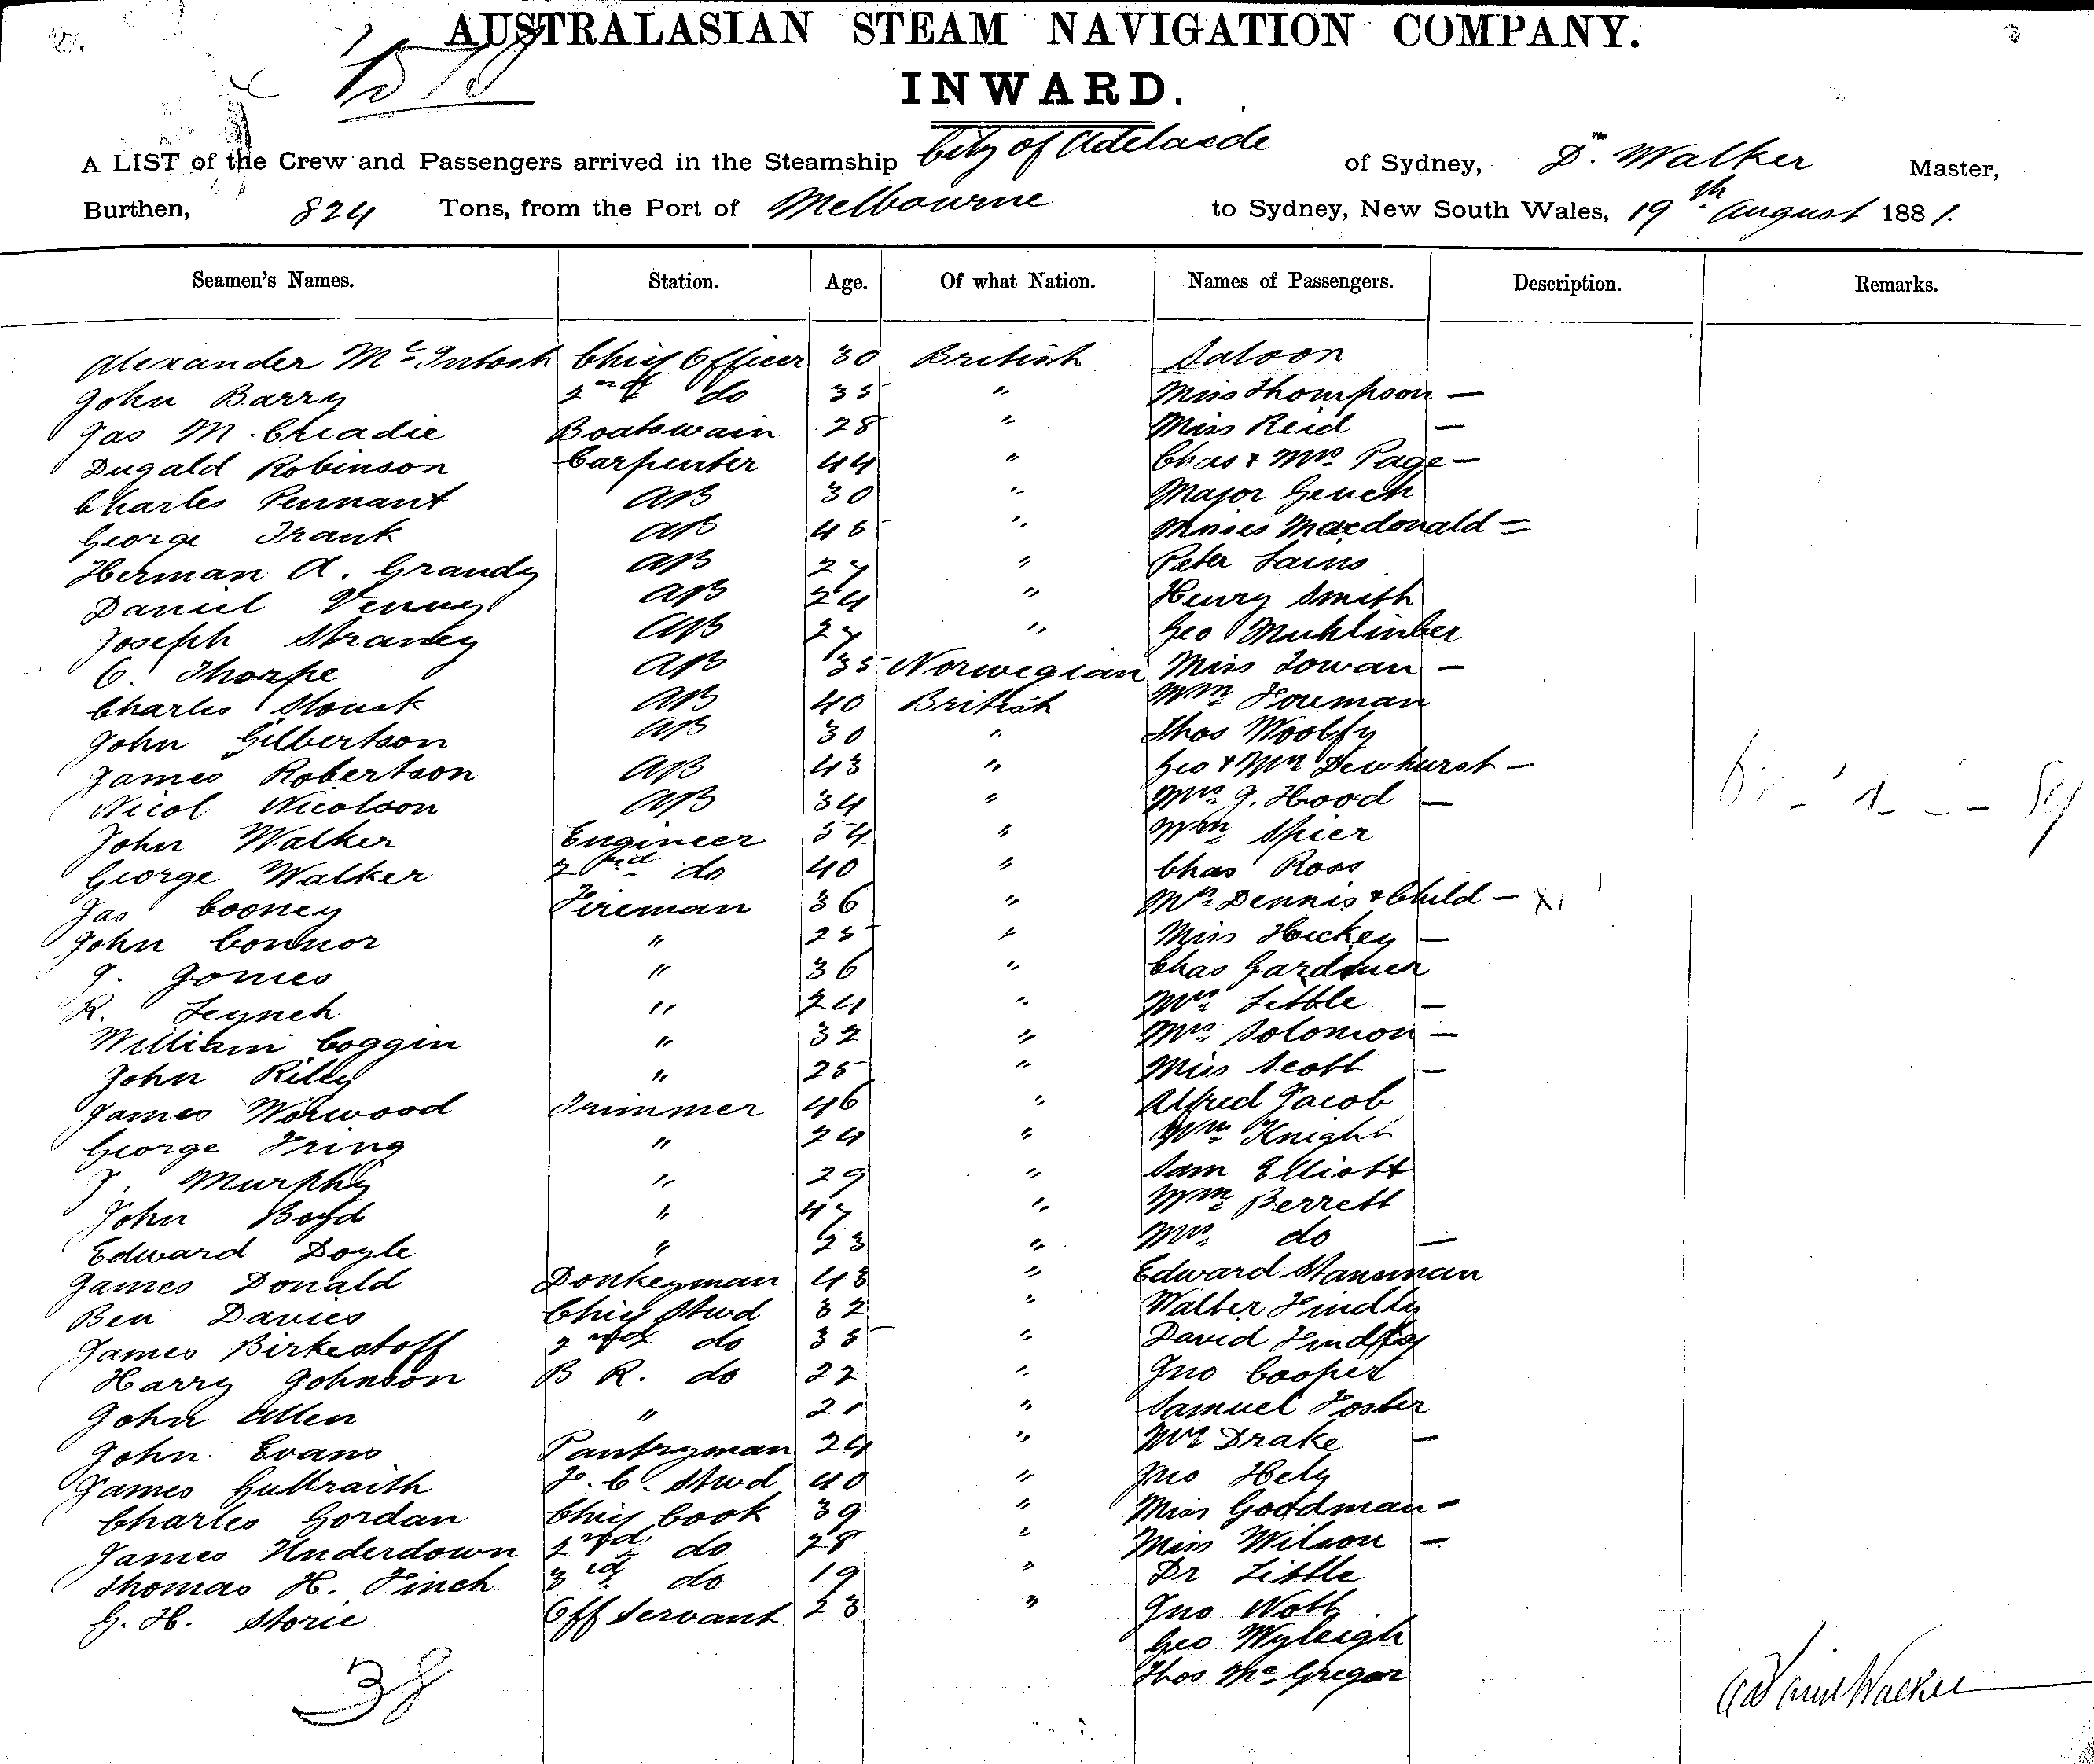 AUSTRALASIAN STEAM NAVIGATION COMPANY.
INWARD.
A LIST of the Crew and Passengers arrived in the Steamship City of Adelaide of Sydney, D. Walker Master,
Burthen, 824 Tons, from the Port of Melbourne to Sydney, New South Wales, 19th August 1881.
Seamen's Names. Station. Age. Of what Nation. Names of Passengers. Description. Remarks.
Alexander McIntosh Chief Officer 30 British Saloon
John Barry 2nd do 35 " Miss Thompson —
Jas M. Creadie Boatswain 28 " Miss Reid —
Dugald Robinson Carpenter 44 " Chas & Mrs Page —
Charles Pennant AB 30 " Major
George Frank AB 45 " Misses Macdonald =
Herman A. Grandy AB 27 " Peter
Daniel AB 24 " Henry Smith
Joseph AB 27 " Geo
C. Thorpe AB 35 Norwegian Miss —
Charles AB 40 British Wm
John Gilbertson AB 30 " Thos
James Robertson AB 43 " Geo & Mrs Dewhurst —
Nicol Nicolson AB 34 " Mrs J. Hood —
John Walker Engineer 54 " Wm Spier
George Walker 2nd do 40 " Chas Ross
Jas Cooney Fireman 36 " Mrs Dennis & Child —
John Connor " 25 " Miss Hickey —
J. Jones " 36 " Chas Gardiner
R. Leynch " 24 " Mrs Little —
William Coggin " 32 " Mrs Solomon —
John Riley " 25 " Miss Scott —
James Norwood Trimmer 46 " Alfred Jacob
George Fring " 24 " Knight
J. Murphy " 29 " Sam Elliott
John Boyd " 47 " Wm Berrett
Edward Doyle " 23 " Mrs do —
James Donald Donkeyman 43 " Edward Stansman
Ben Davies Chief Stwd 32 " Walter Findley
James Birkestoff 2nd do 35 " David Findley
Harry Johnson B R. do 22 " Jno Cooper
John Allen " 21 " Samuel Foster
John Evans Pantryman 24 " Mrs Drake —
James Gulbraith F. C. Stwd 40 " Jno Hely
Charles Gordan Chief Cook 39 " Miss Goodman —
James Underdown 2nd do 28 " Miss Wilson —
Thomas H. Finch 3rd do 19 " Dr Little
G. H. Storie Off Servant 23 " Jno Watt
Geo Wyleigh
Thos McGregor
38